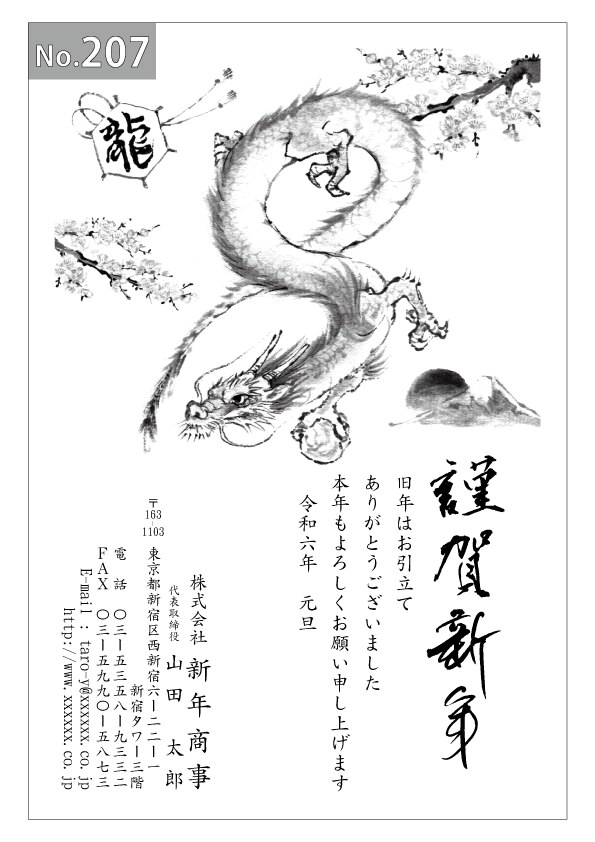 No.207
龍
謹賀新年
旧年はお引立て
ありがとうございました
本年もよろしくお願い申し上げます
令和六年　元旦
株式会社 新年商事
代表取締役 山田 太郎
〒163-1103
東京都新宿区西新宿六ー二二ー一
新宿タワー三階
電 話 〇三ー五三五八ー九三三二
FAX 〇三ー五九九〇ー五八七三
E-mail : taro-y@xxxxxx.co.jp
http://www.xxxxxx.co.jp